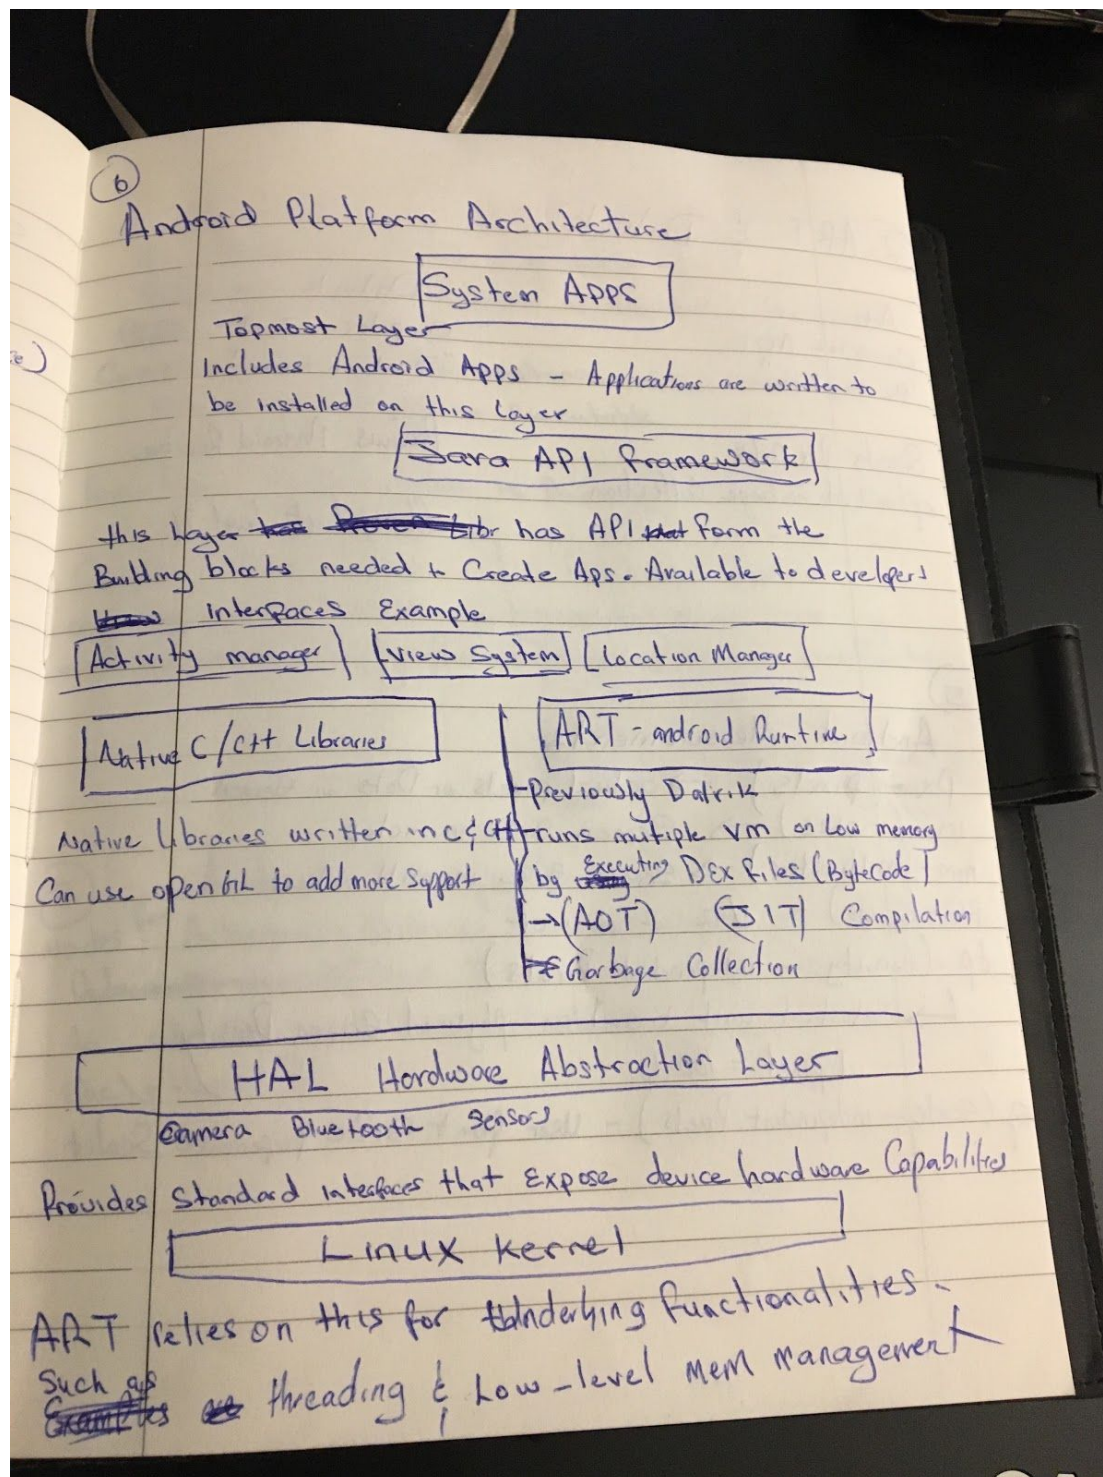 6
Android Platform Architecture
System Apps
Topmost Layer
Includes Android Apps - Applications are written to
be installed on this layer
Java API framework
this Layer has API that form the
Building blocks needed to Create Aps. Available to developers
interfaces Example
Activity manager View System Location Manager
Native C/C++ Libraries
Native Libraries written in C & C++
Can use openGL to add more Support
ART - android Runtime
- Previously Dalvik
- runs mutiple vm on Low memory
by Executing DEX files (ByteCode)
→ (AOT) (JIT) Compilation
Garbage Collection
HAL Hardware Abstraction Layer
Camera Bluetooth Sensors
Provides Standard interfaces that Expose device hardware Capabilities
Linux Kernel
ART relies on this for Underlying functionalities.
Such as threading & Low-level mem management